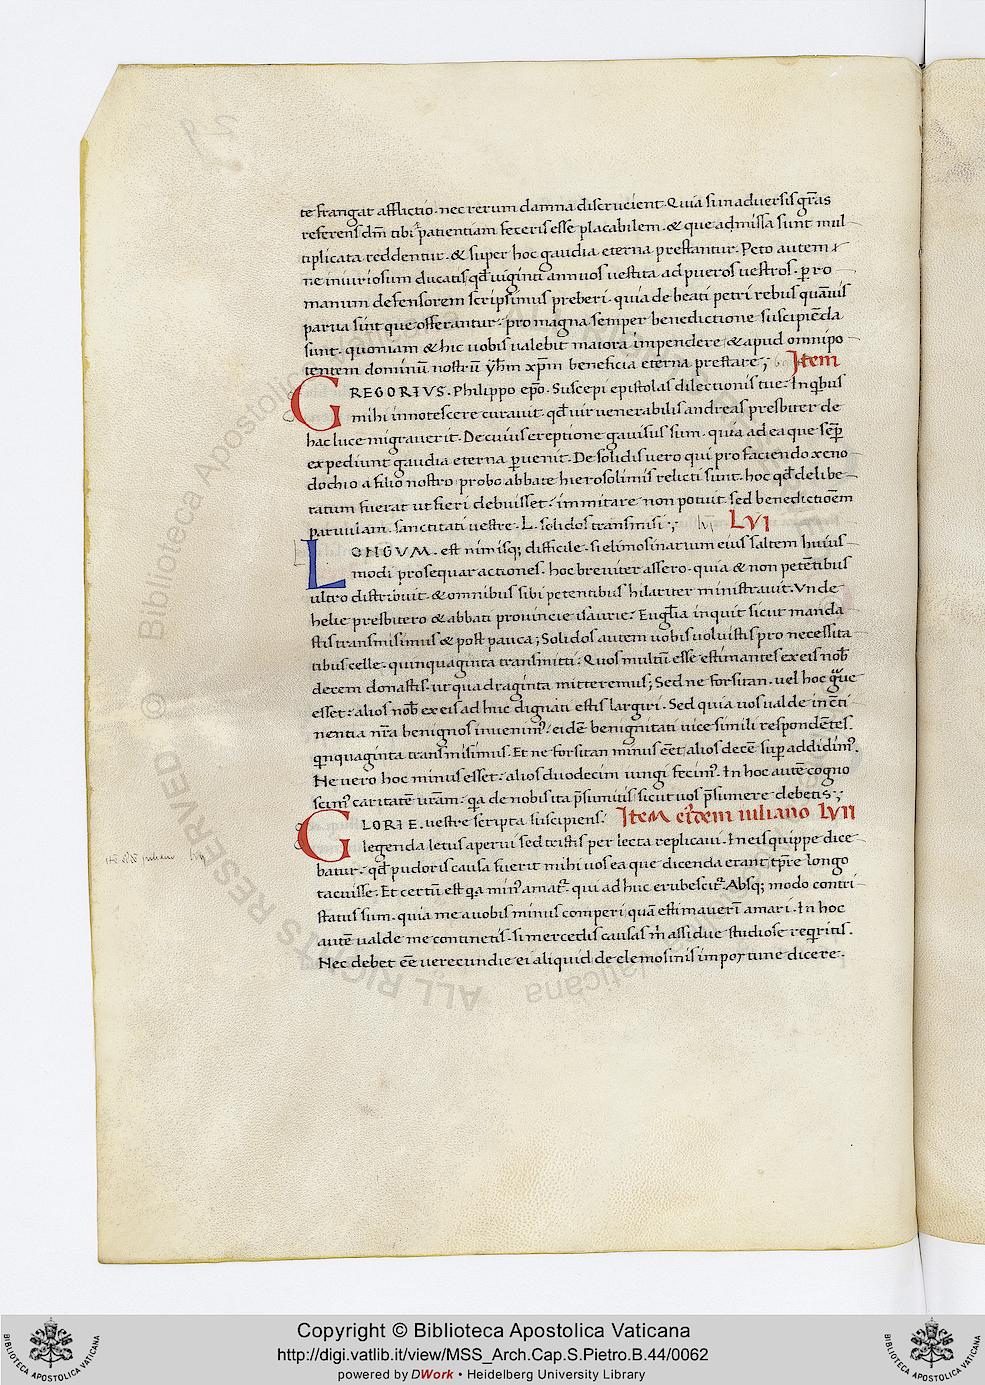 te frangat afflictio. nec rerum damna discrucient. Quia si in adversis gr̃as
referens dm̃ tibi patientiam feceris esse placabilem. & que admissa sunt mul-
tiplicata reddentur. & super hoc gaudia eterna prestantur. Peto autem
ne iniuriosum ducatis qđ uiginti annuos uestita ad pueros uestros. per ro-
manum defensorem scripsimus preberi. quia de beati petri rebus quãuis
parua sint que offerantur. pro magna semper benedictione suscipiẽda
sunt. quoniam & hic uobis ualebit maiora impendere. & apud omnipo-
tentem dominũ nostrũ yh̃m xp̃m beneficia eterna prestare; Item
GREGORIVS. Philippo ep̃o. Suscepi epistolas dilectionis tue. In quibus
mihi innotescere curauit. qđ uir venerabilis andreas presbiter de
hac luce migrauerit. De cuius ereptione gauisus sum. quia ad ea que sẽp
expediunt gaudia eterna puenit. De solidis uero qui pro faciendo xeno-
dochio a filio nostro probo abbate hierosolimis relicti sunt. hoc qđ delibe-
ratum fuerat ut fieri debuisset. immitare non potuit. sed benedictioẽm
paruulam. sanctitati uestre. L. solidos transmisi; lvj LVI
LONGVM. est nimisq; difficile. si elimosinarum eius saltem huius-
modi prosequar actiones. hoc breuiter assero. quia & non petẽtibus
ultro distribuit. & omnibus sibi petentibus hilariter ministrauit. Vnde
helie presbitero & abbati prouincie isaurie. Eugl̃ia inquit sicut manda-
stis transmisimus & post pauca; Solidos autem uobis uoluistis pro necessita-
tibus celle. quinquaginta transmitti. Quos multũ esse estimantes ex eis nob̃
decem donastis. ut quadraginta mitteremus; Sed ne forsitan. uel hoc gr̃ue
esset. alios nob̃ ex eis ad huc dignati estis largiri. Sed quia uos ualde in cõti-
nentia nr̃a benignos inuenim᷒. eidẽ benignitati uice simili respondẽtes.
qinquaginta transmisimus. Et ne forsitan minus eẽt alios decẽ sup addidim᷒.
Ne uero hoc minus esset. alios duodecim iungi fecim᷒. In hoc autẽ cogno-
scim᷒ caritatẽ ur̃am. qa de nobis ita p̃sumitis sicut uos p̃sumere debetis;
GLORIE. uestre scripta suscipiens. Item eidem iuliano LVII
legenda letus aperui sed tristis per lecta replicaui. In eis quippe dice-
batur. qđ pudoris causa fuerit mihi uos ea que dicenda erant tp̃re longo
tacuisse. Et certũ est qa min᷒ amat̃. qui ad huc erubescit̃. Absq; modo contri-
status sum. quia me a uobis minus comperi quã estimauerĩ amari. In hoc
autẽ ualde me continetis. si mercedis causas m̃ assidue studiose reqritis.
Nec debet eẽ uerecundie ei aliquid de elemosinis importune dicere.
Copyright © Biblioteca Apostolica Vaticana
http://digi.vatlib.it/view/MSS_Arch.Cap.S.Pietro.B.44/0062
powered by DWork • Heidelberg University Library
BIBLIOTECA APOSTOLICA VATICANA
BIBLIOTECA APOSTOLICA VATICANA
© Biblioteca Apostolica Vaticana ALL RIGHTS RESERVED